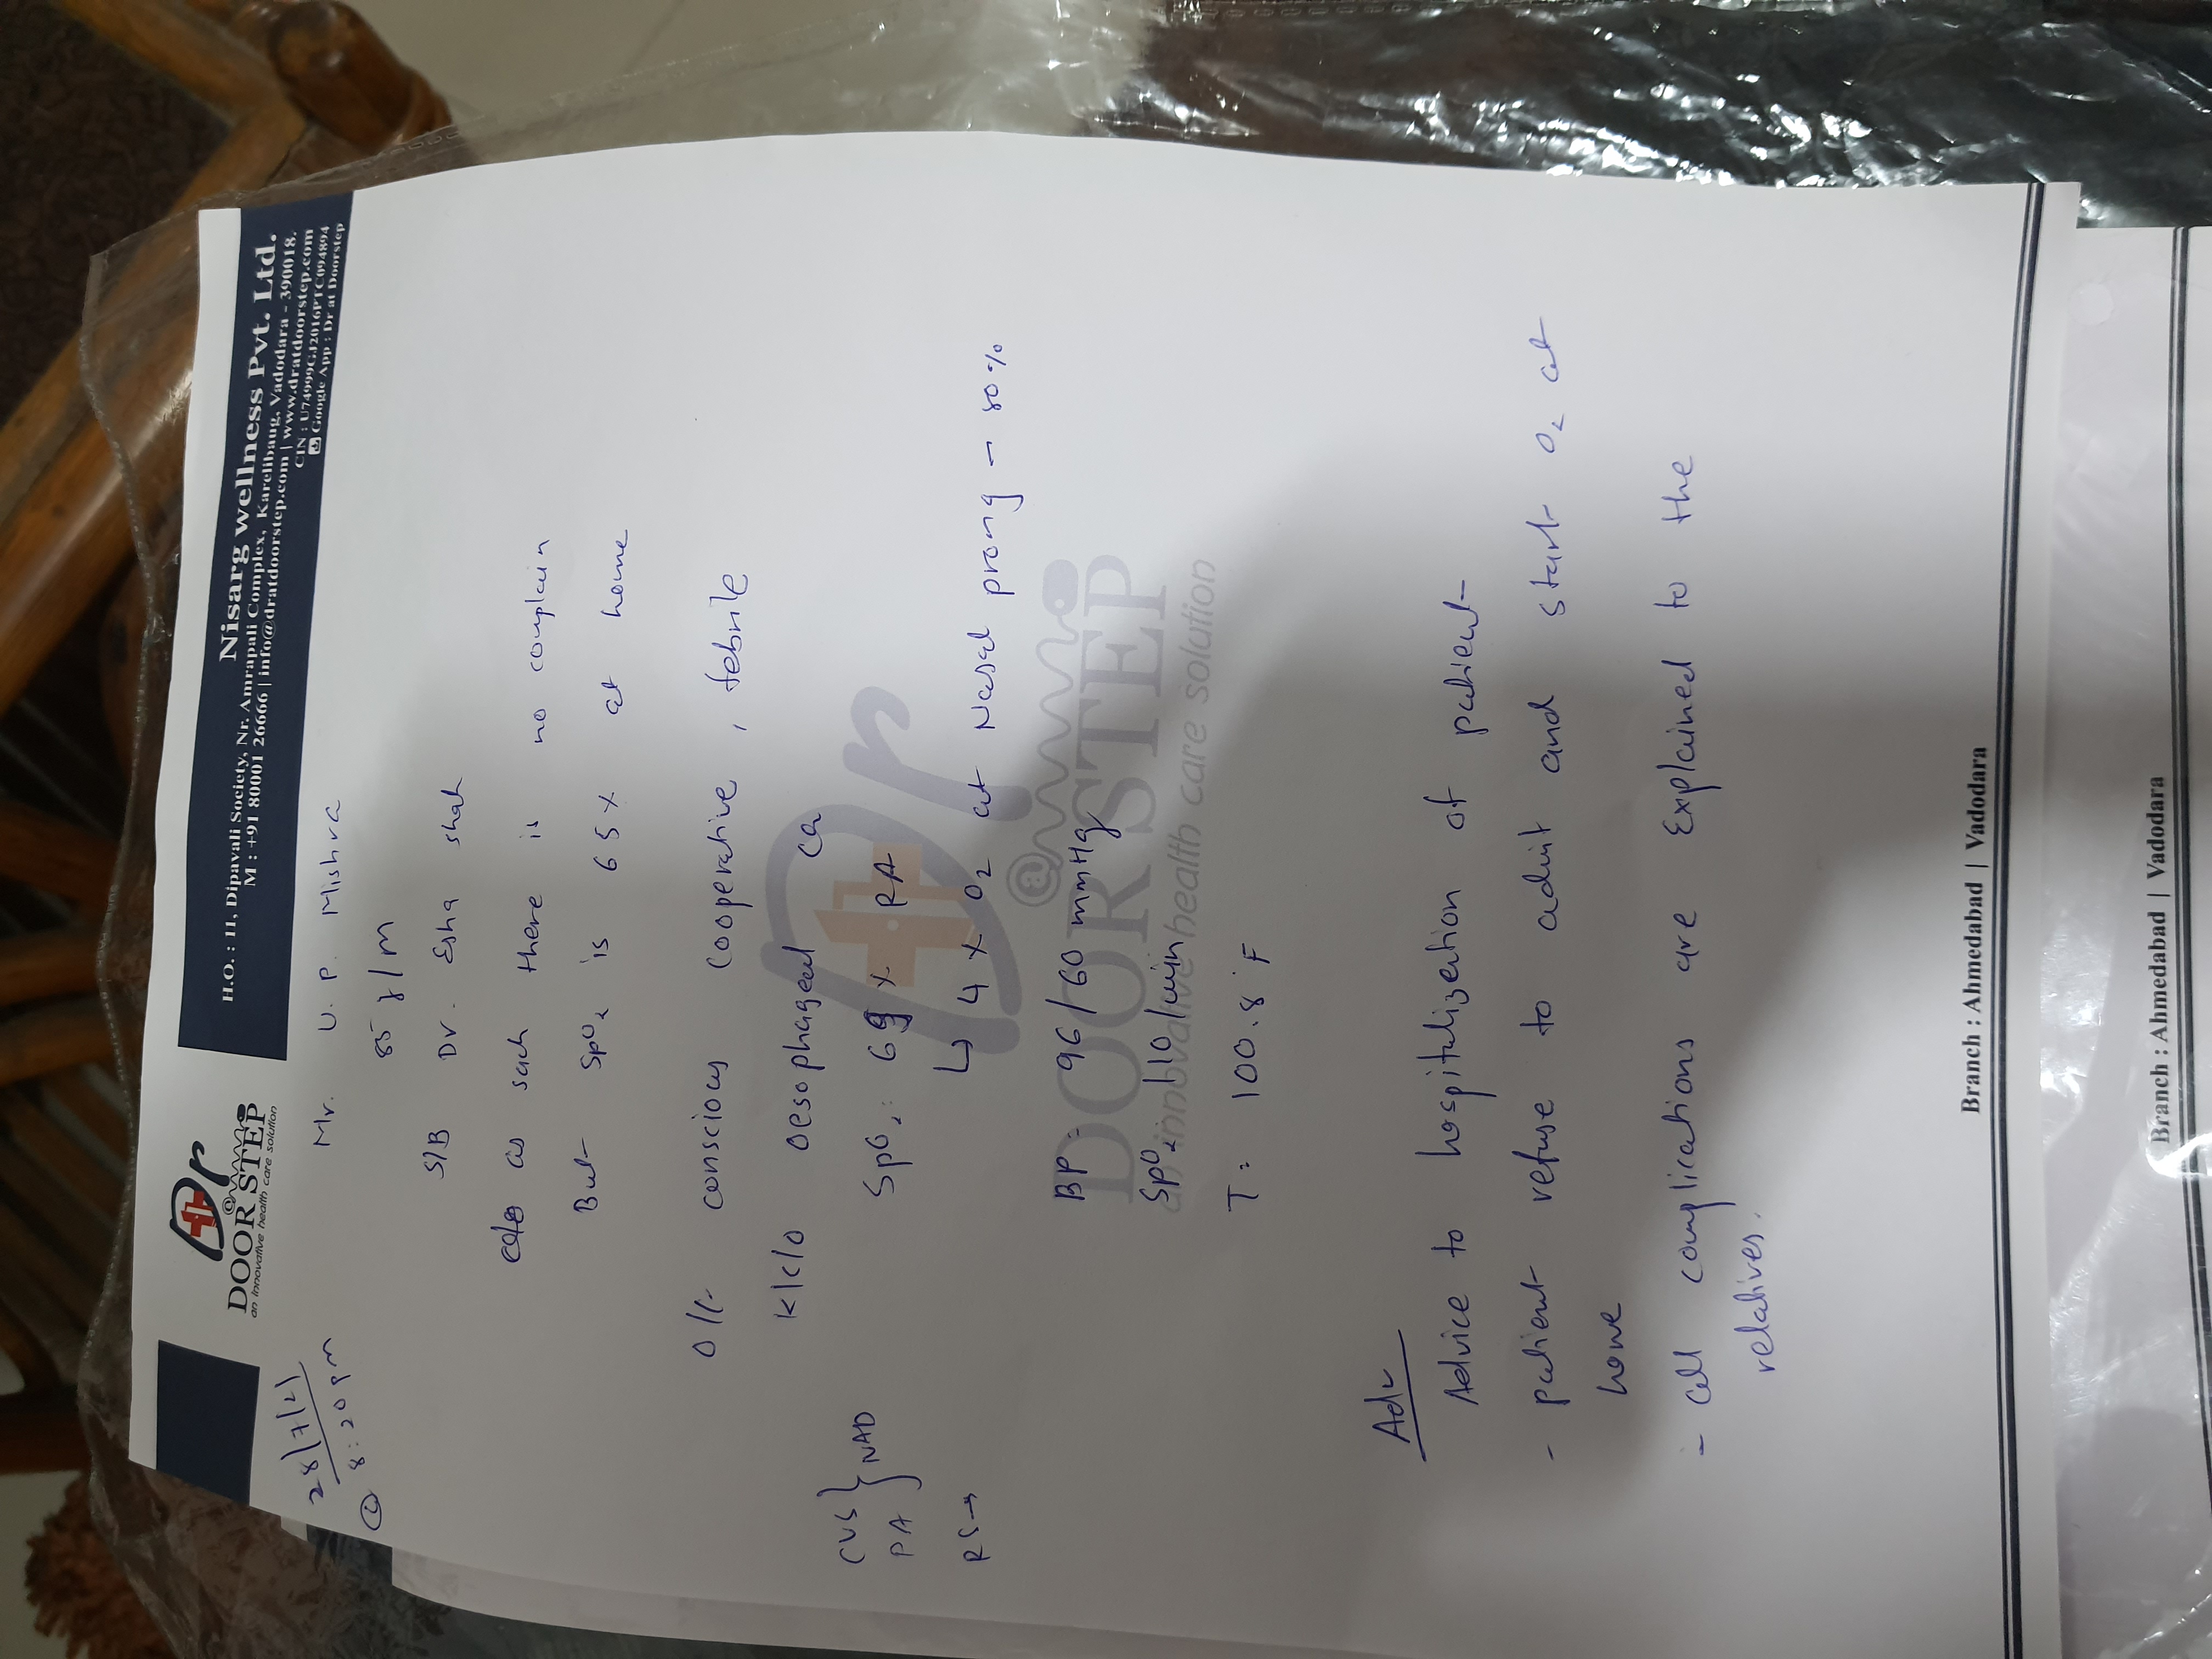 Dr
@
DOOR STEP
an innovative health care solution
Nisarg wellness Pvt. Ltd.
H.O. : 11, Dipavali Society, Nr. Amrapali Complex, Karelibaug, Vadodara - 390018.
M : +91 80001 26666 | info@dratdoorstep.com | www.dratdoorstep.com
CIN : U74999GJ2016PTC094894
Google App : Dr at Doorstep
28/7/21
@ 8:20pm
Mr. U. P. Mishra
85 y/m
S/B Dr. Esha shah
as such there is no complain
But SpO2 is 65% at home
O/E conscious cooperative, febrile
K/c/o oesophageal ca
CVS } NAD
PA
SpO2: 69% RA
RS→
↳ 4 O2 at Nasal prong - 80%
BP: 96/60 mmHg
SpO2: 110/min
T: 100.8°F
Dr
@
DOOR STEP
an innovative health care solution
Adv
Advice to hospitalization of patient
- patient refuse to admit and start O2 at
home
- all complications are Explained to the
relatives.
Branch : Ahmedabad | Vadodara
Branch : Ahmedabad | Vadodara